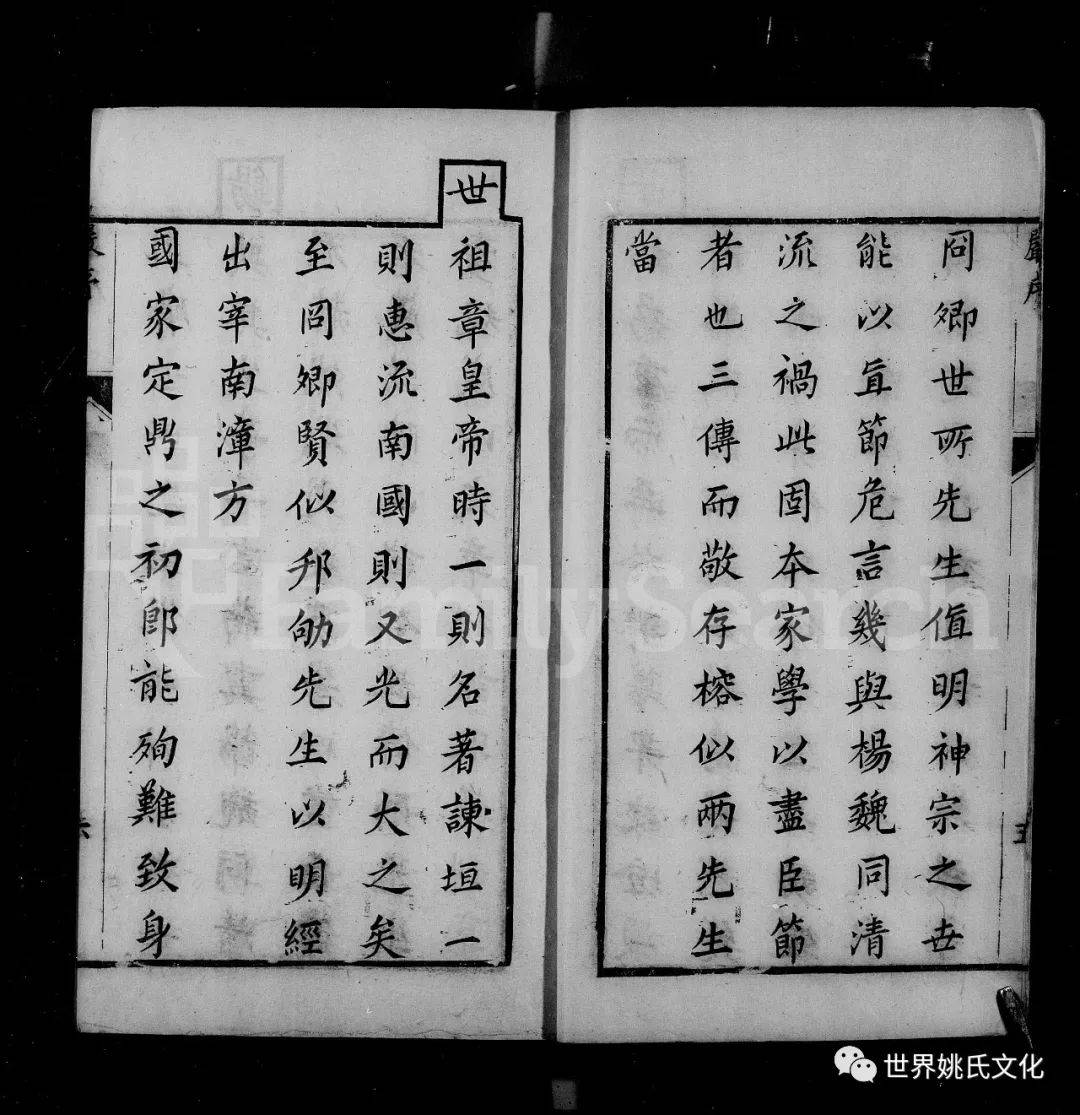 嚴序
冏卿世所先生值明神宗之世
能以直節危言幾與楊魏同清
流之禍此固本家學以盡臣節
者也三傳而敬存榕似兩先生
當
五
世
祖章皇帝時一則名著諫垣一
則惠流南國則又光而大之矣
至冏卿賢似邦劬先生以明經
出宰南漳方
國家定鼎之初郎能殉難致身
嚴序
六
FamilySearch
世界姚氏文化